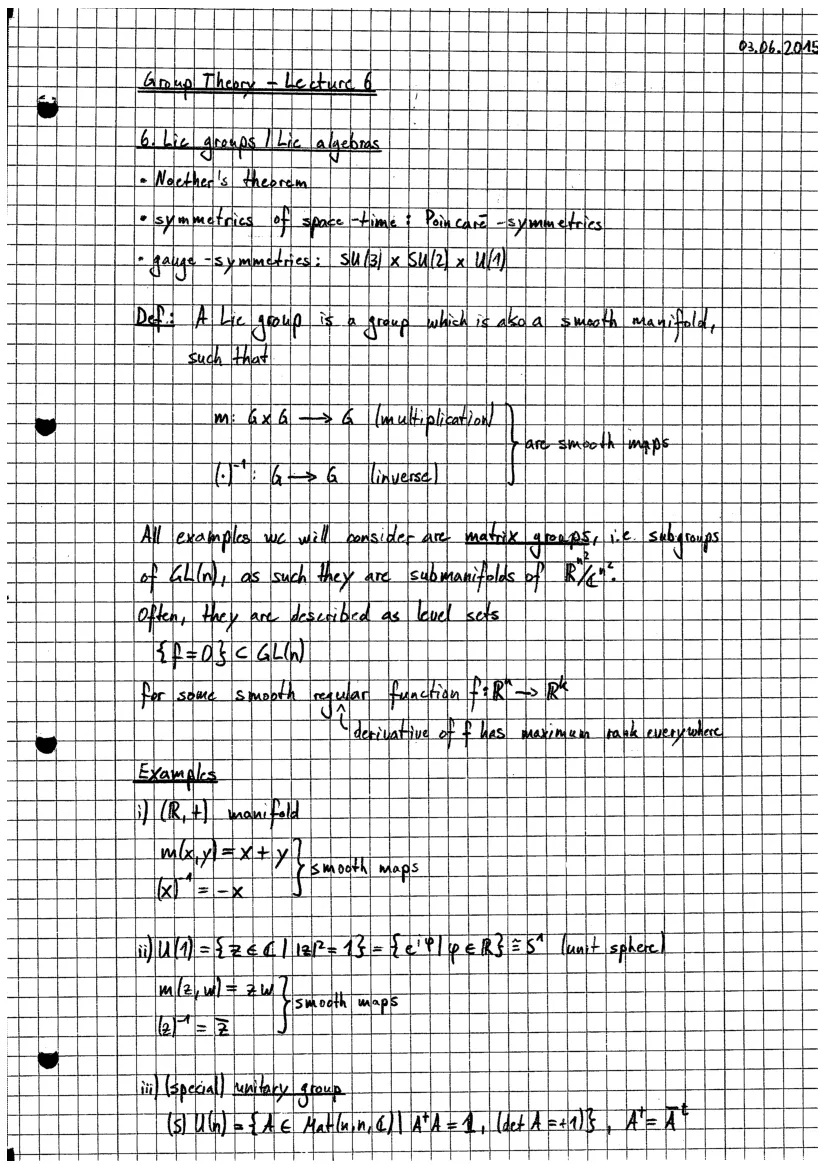 03.06.2015
Group Theory - Lecture 6
6. Lie groups / Lie algebras
• Noether's theorem
• symmetries of space-time: Poincaré-symmetries
• gauge-symmetries: SU(3) × SU(2) × U(1)
Def.: A Lie group is a group which is also a smooth manifold,
such that
m: G×G ⟶ G (multiplication)
are smooth maps
(·)⁻¹: G ⟶ G (inverse)
All examples we will consider are matrix groups, i.e. subgroups
of GL(n), as such they are submanifolds of ℝⁿ²/ℂⁿ².
Often, they are described as level sets
{f=0} ⊂ GL(n)
for some smooth regular function f: ℝⁿ → ℝᵏ
derivative of f has maximum rank everywhere
Examples
i) (ℝ, +) manifold
m(x,y) = x + y
smooth maps
(x)⁻¹ = -x
ii) U(1) = {z ∈ ℂ | |z|² = 1} = {e^{iφ} | φ ∈ ℝ} ≅ S¹ (unit sphere)
m(z,w) = zw
smooth maps
(z)⁻¹ = z̅
iii) (special) unitary group
(S)U(n) = {A ∈ Mat(n,n,ℂ) | A⁺A = 𝟙, (det A = +1)}, A⁺ = A̅ᵗ